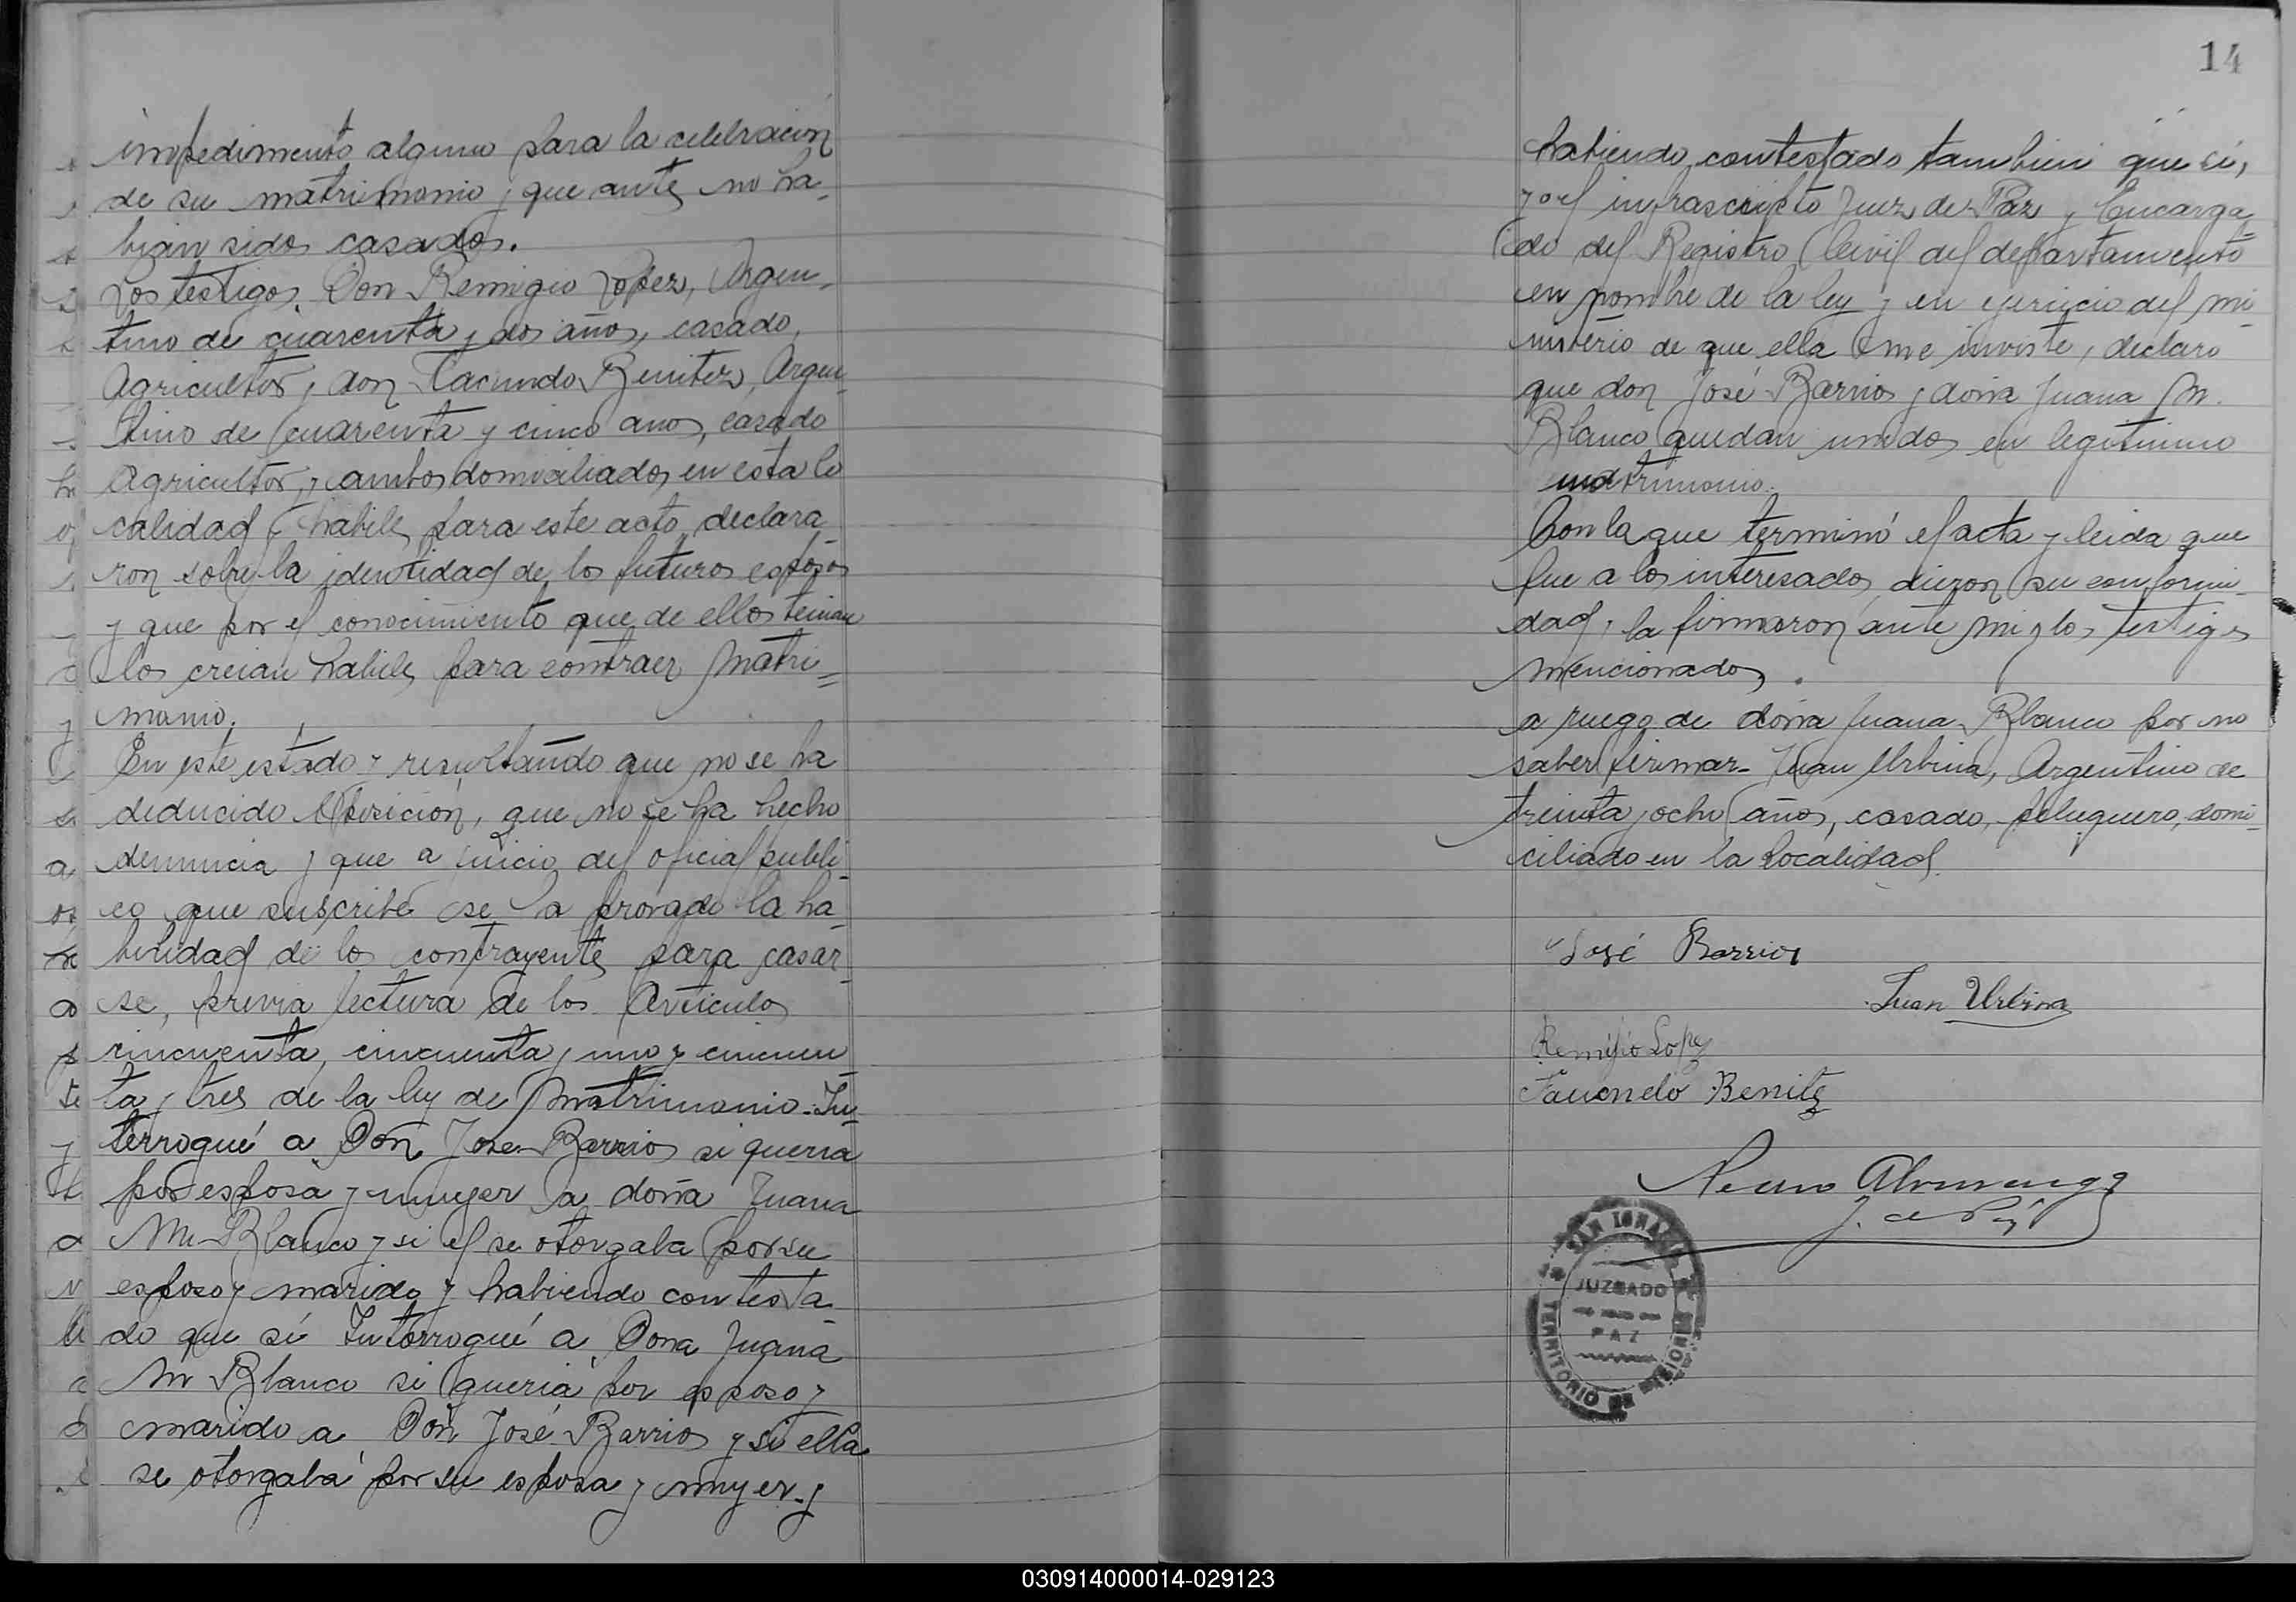 impedimento alguno para la celebración
de su matrimonio y que antes no ha-
bian sidos casados.
Los testigos Don Remigio Lopez, Argen-
tino de cuarenta y dos años, casado,
Agricultor, don Facundo Benitez, Argen-
tino de cuarenta y cinco años, casado
Agricultor, y ambos domiciliados en esta lo
calidad y habiles para este acto declara-
ron sobre la identidad de los futuros esposos
y que por el conocimiento que de ellos tenian
los creian habiles para contraer Matri=
monio.
En este estado y resultando que no se ha
deducido oposición, que no se ha hecho
denuncia y que a juicio del oficial publi-
co que suscribe se ha provado la ha-
bilidad de los contrayentes para casar-
se, previa lectura de los Articulos
cincuenta, cincuenta y uno y cincuen-
ta y tres de la ley de Matrimonio. In-
terroqué a Don Jose Barrios si queria
por esposa y muger a doña Juana
M. Blanco y si el se otorgaba por su
esposo y marido y habiendo contesta-
do que sí Interroqué a Dona Juana
M Blanco si queria por esposo y
marido a Don José Barrios y si ella
se otorgaba por su esposa y muyer y
14
habiendo contestado tambien que sí,
yo el infrascripto Juez de Paz y Encarga-
do del Registro Civil del departamento
en nombre de la ley y en ejercicio del mi-
nisterio de que ella me inviste, declaro
que don José Barrios y doña Juana M.
Blanco quedan unidos en legitimo
matrimonio.
Con la que terminó el acta y leida que
fue a los interesados dieron su conformi-
dad, la firmaron ante mi y los testigos
mencionados.
a ruego de doña Juana Blanco por no
saber firmar Juan Urbina, Argentino de
treinta y ocho años, casado, peluquero, domi-
ciliado en la localidad.
José Barrios
Juan Urbina
Remijio Lopez
Facundo Benitez
J. de Paz
SAN IGNACIO
JUZGADO
PAZ
TERRITORIO DE MISIONES
030914000014-029123